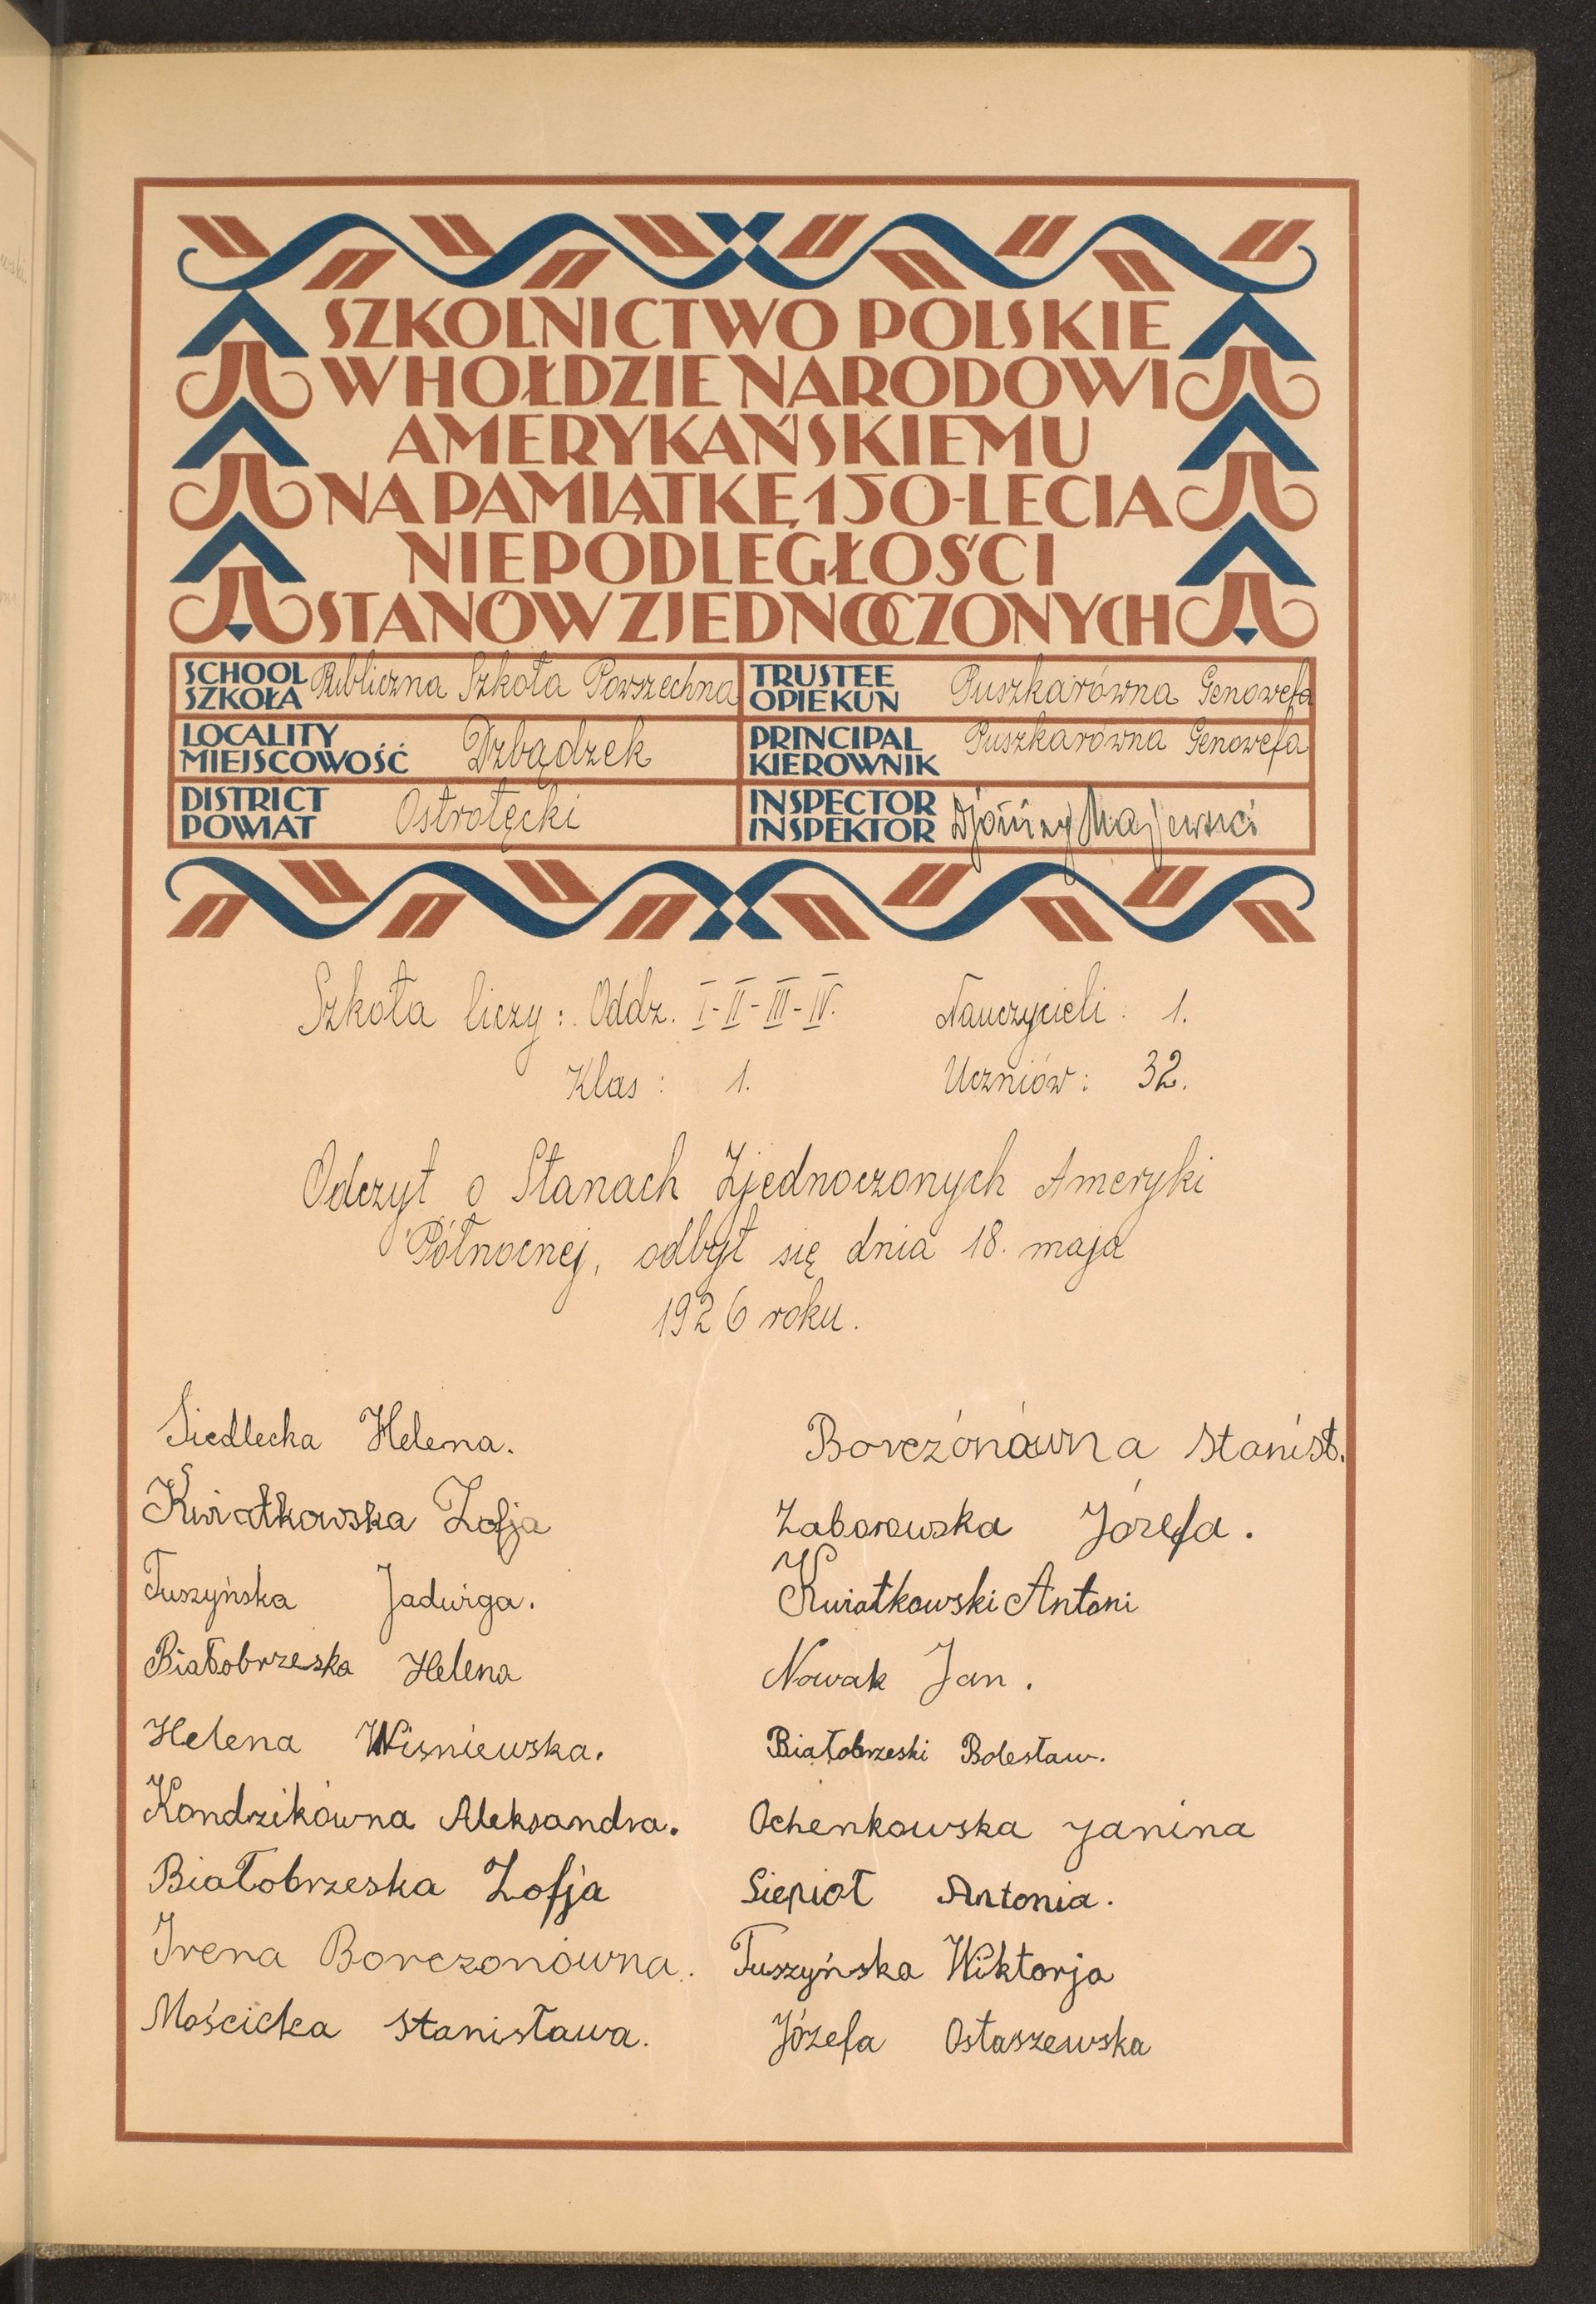 SZKOLNICTWO POLSKIE
W HOŁDZIE NARODOWI
AMERYKAŃSKIEMU
NA PAMIĄTKĘ 150-LECIA
NIEPODLEGŁOŚCI
STANÓW ZJEDNOCZONYCH
SCHOOL
SZKOŁA Publiczna Szkoła Powszechna
TRUSTEE
OPIEKUN Puszkarówna Genowefa
LOCALITY
MIEJSCOWOŚĆ Dzbądzek
PRINCIPAL
KIEROWNIK Puszkarówna Genowefa
DISTRICT
POWIAT Ostrołęcki
INSPECTOR
INSPEKTOR Majewski
Szkoła liczy: Oddz. I-II-III-IV. Nauczycieli: 1.
Klas: 1. Uczniów: 32.
Odczyt o Stanach Zjednoczonych Ameryki
Północnej, odbył się dnia 18. maja
1926 roku.
Siedlecka Helena.
Kwiatkowska Zofja
Tuszyńska Jadwiga.
Białobrzeska Helena
Helena Wisniewska.
Kondzikówna Aleksandra.
Białobrzeska Zofja
Irena Borczonówna.
Mościcka Stanisława.
Borczónówna Stanisł.
Zaborowska Józefa.
Kwiatkowski Antoni
Nowak Jan.
Białobrzeski Bolesław.
Ochenkowska Janina
Siepioł Antonia.
Tuszyńska Wiktorja
Józefa Ostaszewska